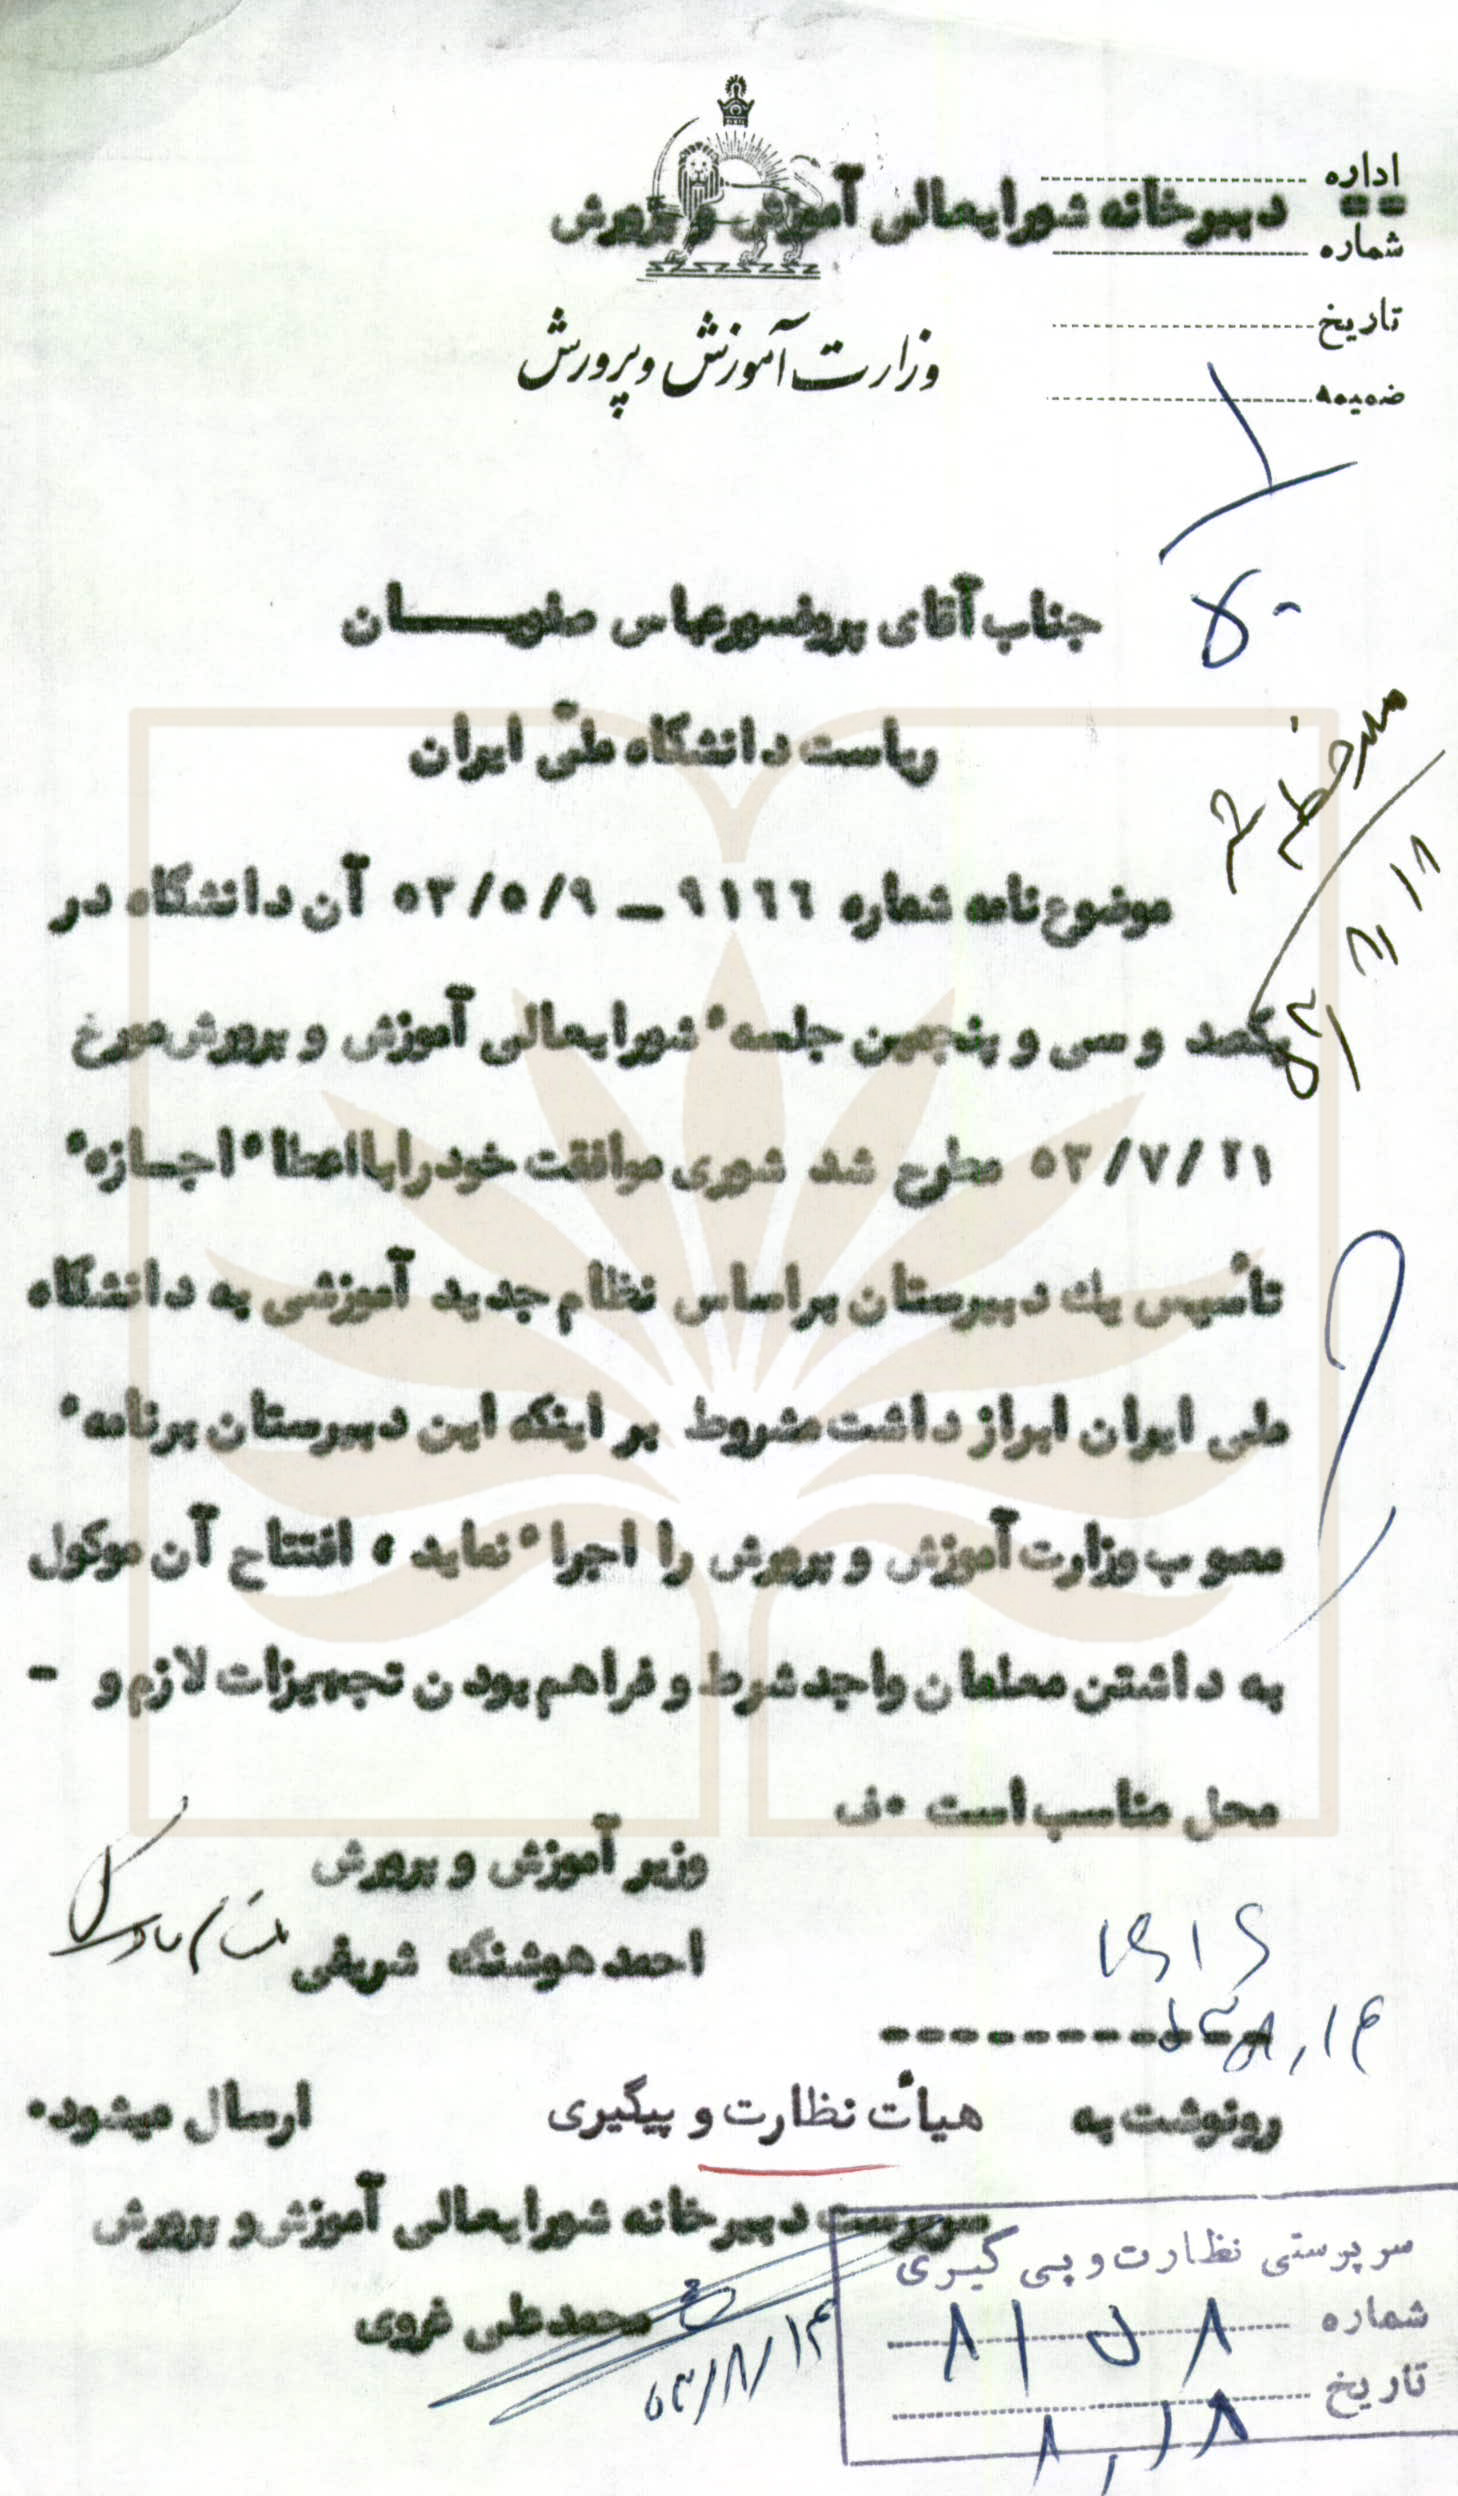 اداره
دبیرخانه شورایعالی آموزش و پرورش
شماره
تاریخ
ضمیمه
وزارت آموزش و پرورش
جناب آقای پروفسور عباس صفویـــان
ریاست دانشگاه ملّی ایران
موضوع نامه شماره ۹۱۶۶ ـ ۵۳/۵/۹ آن دانشگاه در
یکصد و سی و پنجمین جلسهٔ شورایعالی آموزش و پرورش مورخ
۵۳/۷/۲۱ مطرح شد شوری موافقت خود را با اعطاء اجـازهٔ
تأسیس یك دبیرستان براساس نظام جدید آموزشی به دانشگاه
ملی ایران ابراز داشت مشروط بر اینکه این دبیرستان برنامهٔ
مصوب وزارت آموزش و پرورش را اجراء نماید ، افتتاح آن موکول
به داشتن معلمان واجد شرط و فراهم بودن تجهیزات لازم و -
محل مناسب است .ف
وزیر آموزش و پرورش
احمد هوشنگ شریفی
-----------
رونوشت به هیأت نظارت و پیگیری ارسال میشود.
سرپرست دبیرخانه شورایعالی آموزش و پرورش
محمدعلی غروی
۵۳/۸/۱۴
سرپرستی نظارت و پی گیری
شماره ۸۱۵۸
تاریخ ۸,۱۸